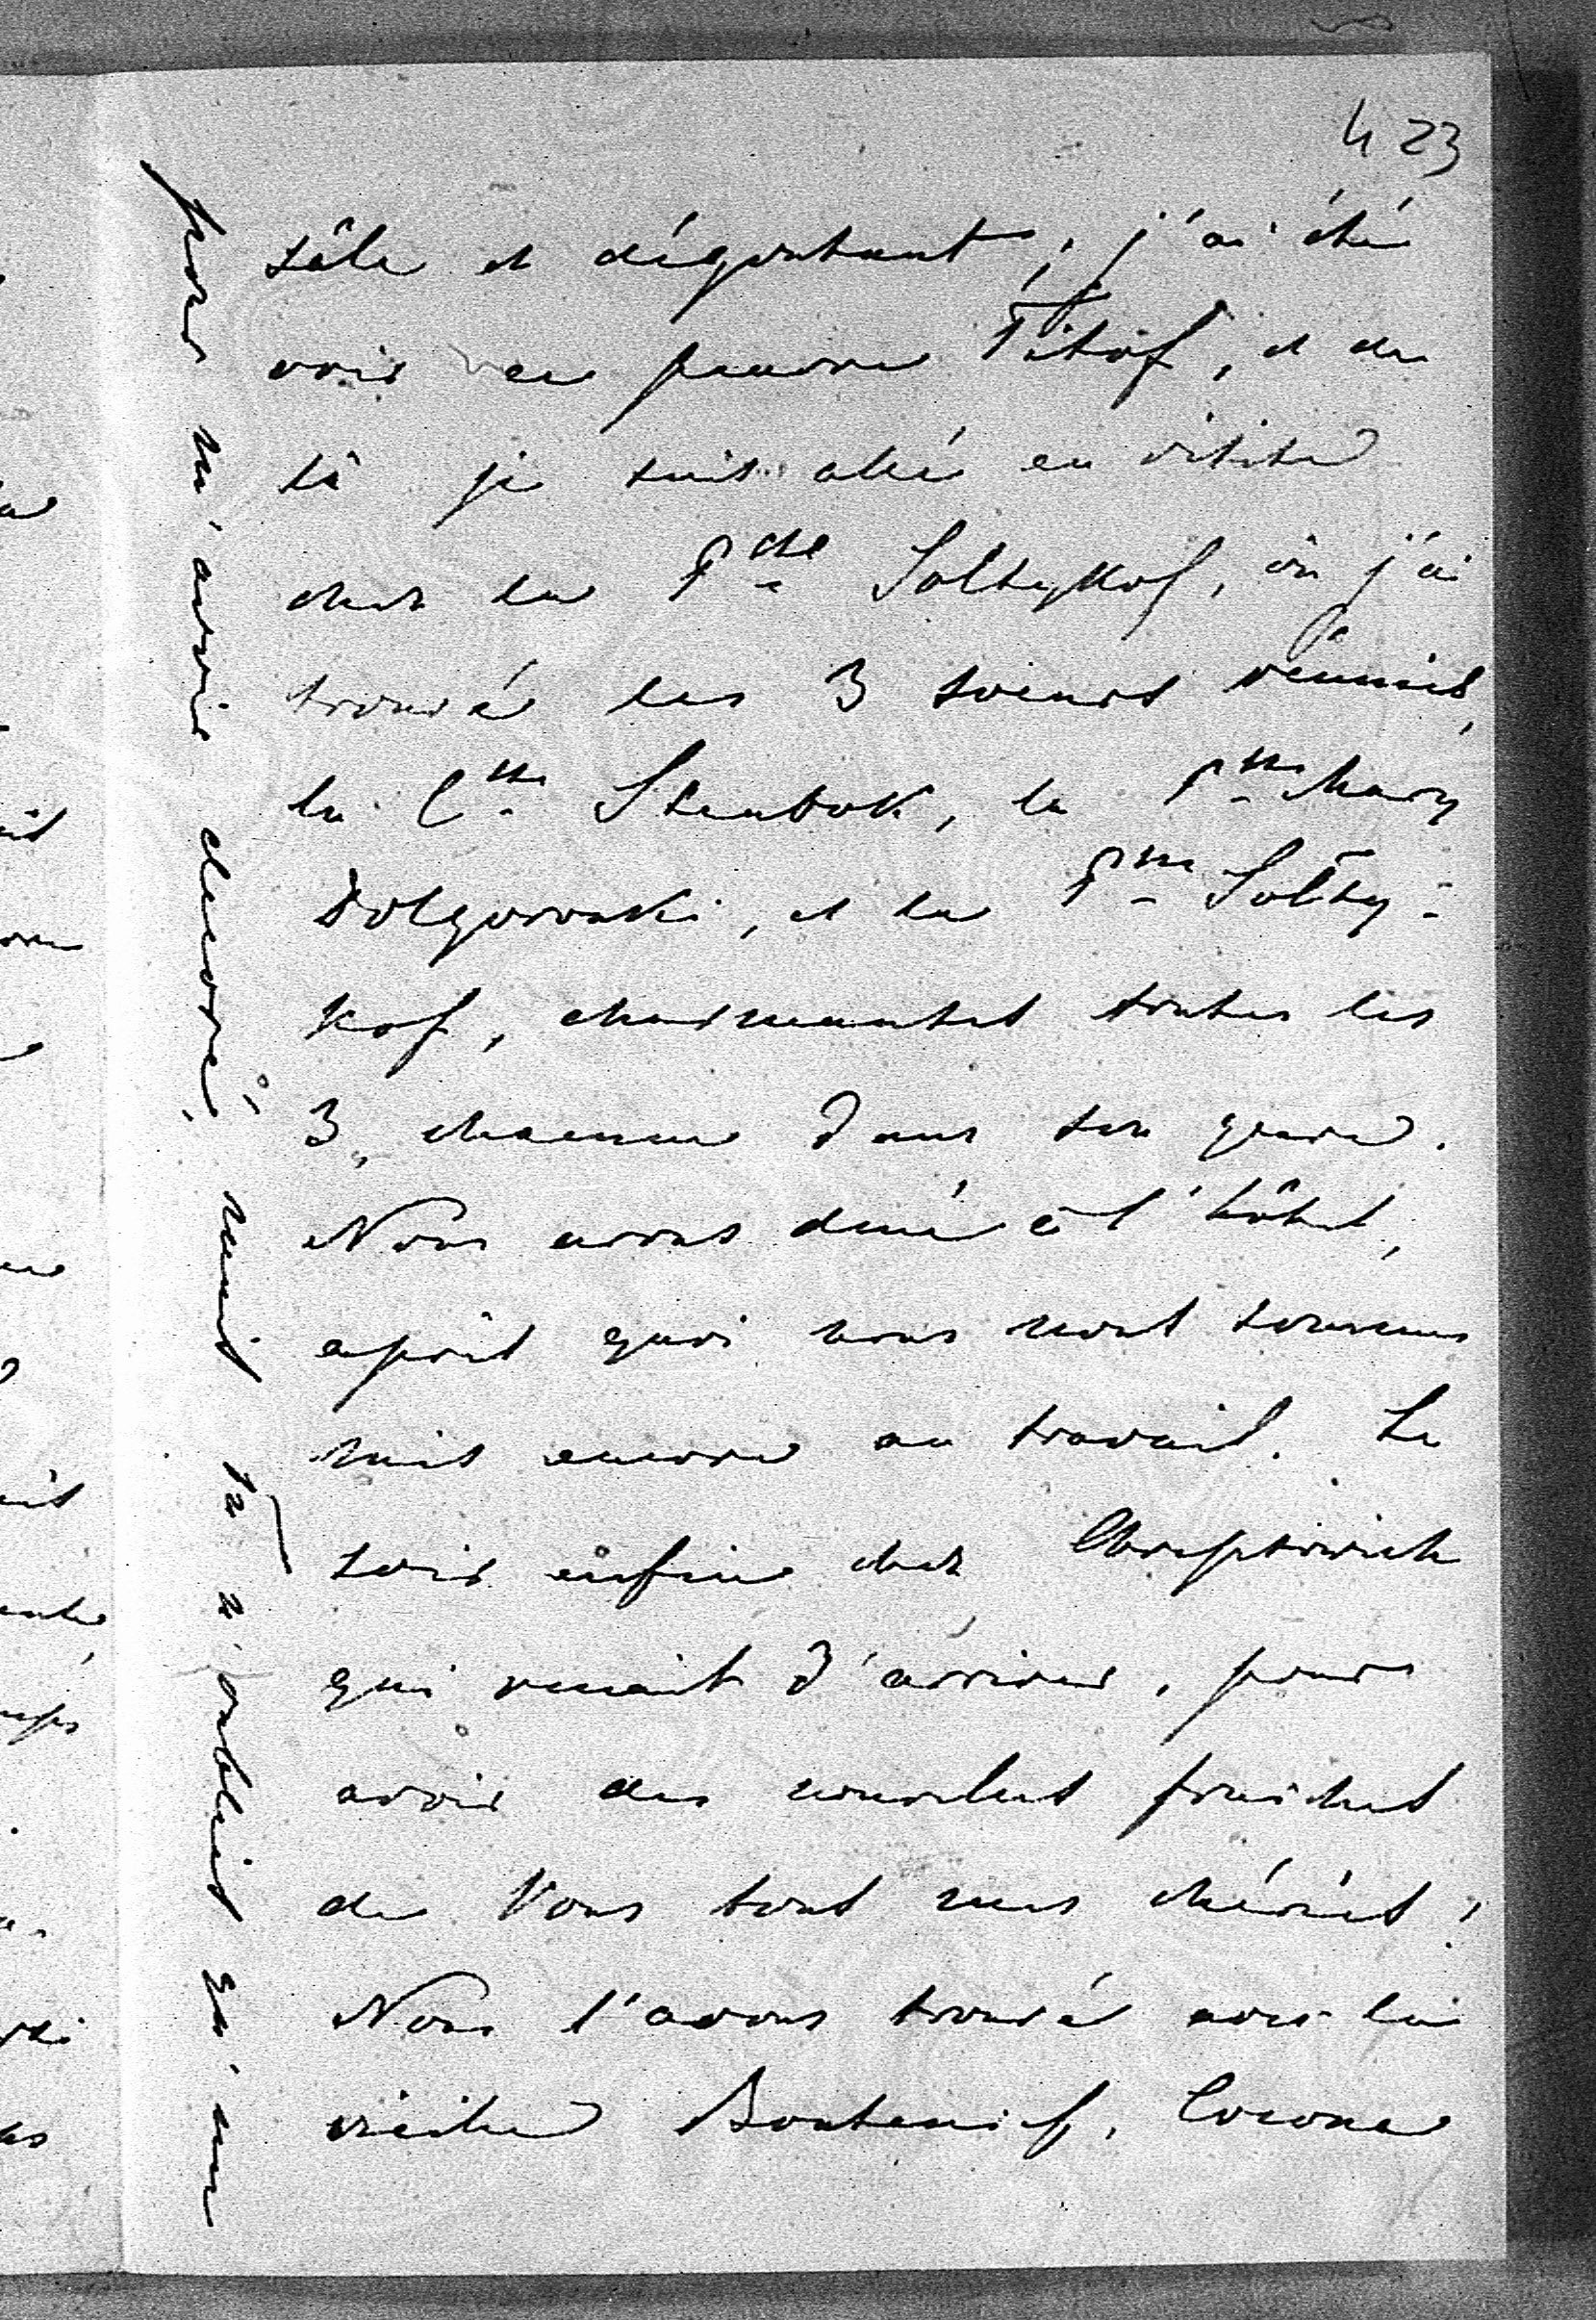 423
sâle et dégoutant, j'ai été
voir ce pauvre Titof, et de
là je suis allé en visite
chez la Pcesse Soltykof, où j'ai
trouvé les 3 soeurs réunies,
la Ctsse Stenbok, la Pcesse Mary
Dolgorouki, et la Pcesse Solty-
kof, charmantes toutes les
3, chacune dans son genre.
Nous avons diné à l'hôtel,
après quoi nous nous sommes
mis encore au travail. Le
soir enfin chez Chreptovich
qui venait d'arriver, pour
avoir des nouvelles fraiches
de Vous tous mes chéries!
Nous l'avons trouvé avec la
vieille Boutenief. Cocona
pour m'avoir decoré, mais tu n'oublies qu'un